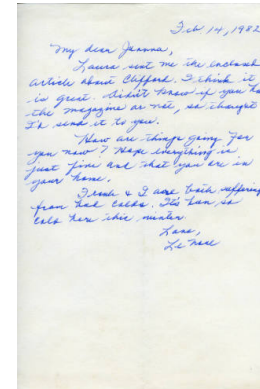 Feb 14, 1982
My dear Joanna,
Laura sent me the enclosed
article about Clifford. I think it
is great. Didn't know if you had
the magazine or not, so thought
I'd send it to you.
How are things going for
you now? Hope everything is
just fine and that you are in
your home.
& I are both suffering
from bad colds. It's been so
cold here this winter.
Love,